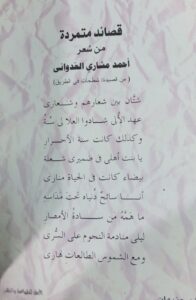 قصائد متمردة
من شعر
أحمد مشاري العدواني
( من قصيدة: شطحات في الطريق )
شتان بين شعارهم وشعاري
عهد الألى شادوا العلا
وكذلك كانت سنة الأحرار
يا بنت أهلي في ضميري شعلة
بيضاء كانت في الحياة مناري
أنا سائح دنياه تحت مداسه
ما همّه من سادة الأمصار
ليلي منادمة النجوم على السُّرى
ومع الشموس الطالعات نهاري